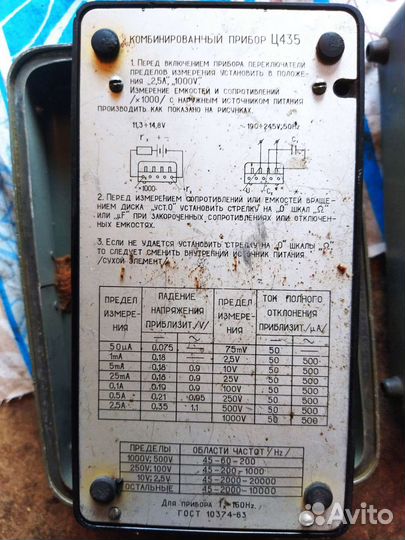 КОМБИНИРОВАННЫЙ ПРИБОР Ц435
1. ПЕРЕД ВКЛЮЧЕНИЕМ ПРИБОРА ПЕРЕКЛЮЧАТЕЛИ
ПРЕДЕЛОВ ИЗМЕРЕНИЯ УСТАНОВИТЬ В ПОЛОЖЕ-
НИЯ „2,5А", „1000V".
ИЗМЕРЕНИЕ ЕМКОСТЕЙ И СОПРОТИВЛЕНИЙ
/×1000/ С НАРУЖНЫМ ИСТОЧНИКОМ ПИТАНИЯ
ПРОИЗВОДИТЬ КАК ПОКАЗАНО НА РИСУНКАХ.
11,3÷14,8V 190÷245V, 50Hz
×1000
2. ПЕРЕД ИЗМЕРЕНИЕМ СОПРОТИВЛЕНИЙ ИЛИ ЕМКОСТЕЙ ВРАЩЕ-
НИЕМ ДИСКА „УСТ.0" УСТАНОВИТЬ СТРЕЛКУ НА „0" ШКАЛ „Ω"
ИЛИ „µF" ПРИ ЗАКОРОЧЕННЫХ СОПРОТИВЛЕНИЯХ ИЛИ ОТКЛЮЧЕН-
НЫХ ЕМКОСТЯХ.
3. ЕСЛИ НЕ УДАЕТСЯ УСТАНОВИТЬ СТРЕЛКУ НА „0" ШКАЛЫ „Ω",
ТО СЛЕДУЕТ СМЕНИТЬ ВНУТРЕННИЙ ИСТОЧНИК ПИТАНИЯ
/СУХОЙ ЭЛЕМЕНТ/.
ПРЕДЕЛ ИЗМЕРЕ-НИЯ ПАДЕНИЕ НАПРЯЖЕНИЯ ПРИБЛИЗИТ. /V/ ПРЕДЕЛ ИЗМЕРЕ-НИЯ ТОК ПОЛНОГО ОТКЛОНЕНИЯ ПРИБЛИЗИТ. /µA/
50µA 0,075 — 75mV 50 —
1mA 0,18 — 2,5V 50 500
5mA 0,18 0,9 10V 50 500
25mA 0,18 0,9 25V 50 500
0,1A 0,19 0,9 100V 50 500
0,5A 0,21 0,95 250V 50 500
2,5A 0,35 1,1 500V 50 500
1000V 50 500
ПРЕДЕЛЫ ОБЛАСТИ ЧАСТОТ /Hz/
1000V; 500V 45-60-200
250V; 100V 45-200-1000
10V; 2,5V 45-2000-20000
ОСТАЛЬНЫЕ 45-2000-10000
Для прибора
ГОСТ 10374-63
Avito